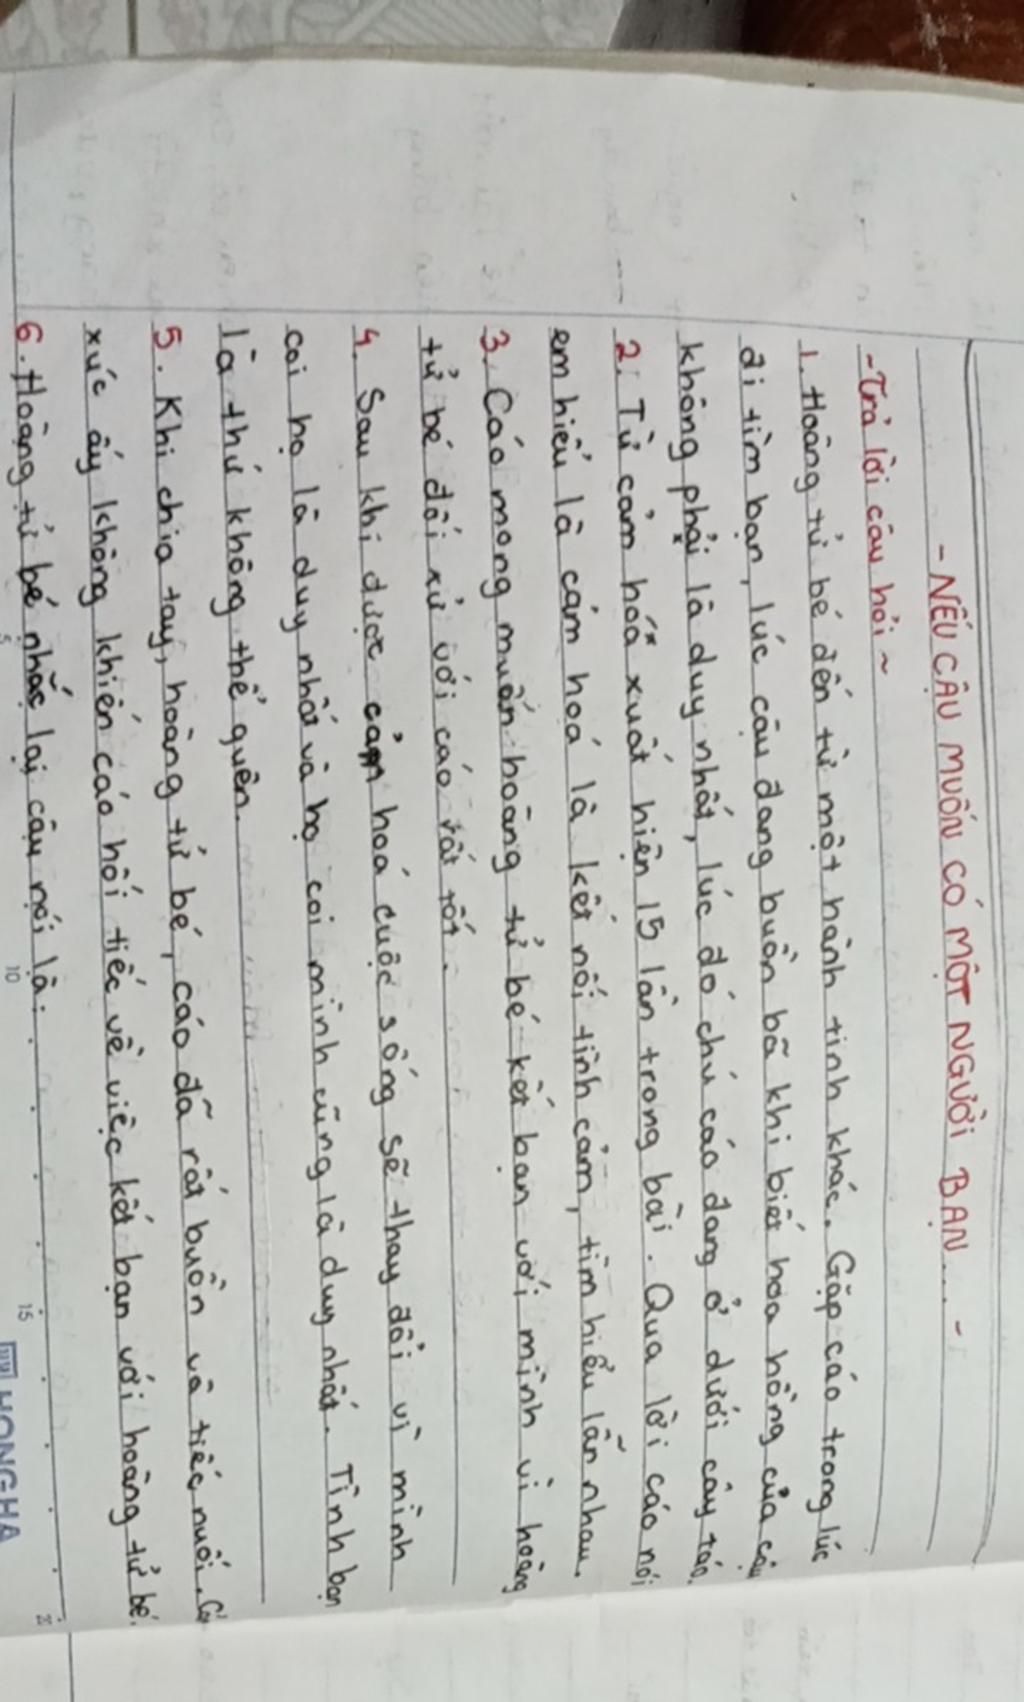 - NẾU CẬU MUỐN CÓ MỘT NGƯỜI BẠN... -
- Trả lời câu hỏi ~
1. Hoàng tử bé đến từ một hành tinh khác. Gặp cáo trong lúc
đi tìm bạn, lúc cậu đang buồn bã khi biết hoa hồng của cậu
không phải là duy nhất, lúc đó chú cáo đang ở dưới cây táo.
2. Từ cảm hoá xuất hiện 15 lần trong bài. Qua lời cáo nói
em hiểu là cảm hoá là kết nối tình cảm, tìm hiểu lẫn nhau.
3. Cáo mong muốn hoàng tử bé kết bạn với mình vì hoàng
tử bé đối xử với cáo rất tốt.
4. Sau khi được cảm hoá cuộc sống sẽ thay đổi vì mình
coi họ là duy nhất và họ coi mình cũng là duy nhất. Tình bạn
là thứ không thể quên.
5. Khi chia tay, hoàng tử bé, cáo đã rất buồn và tiếc nuối. Cả
xức ấy không khiến cáo hối tiếc về việc kết bạn với hoàng tử bé.
6. Hoàng tử bé nhắc lại câu nói là:
5 10 15 20
HONG HA